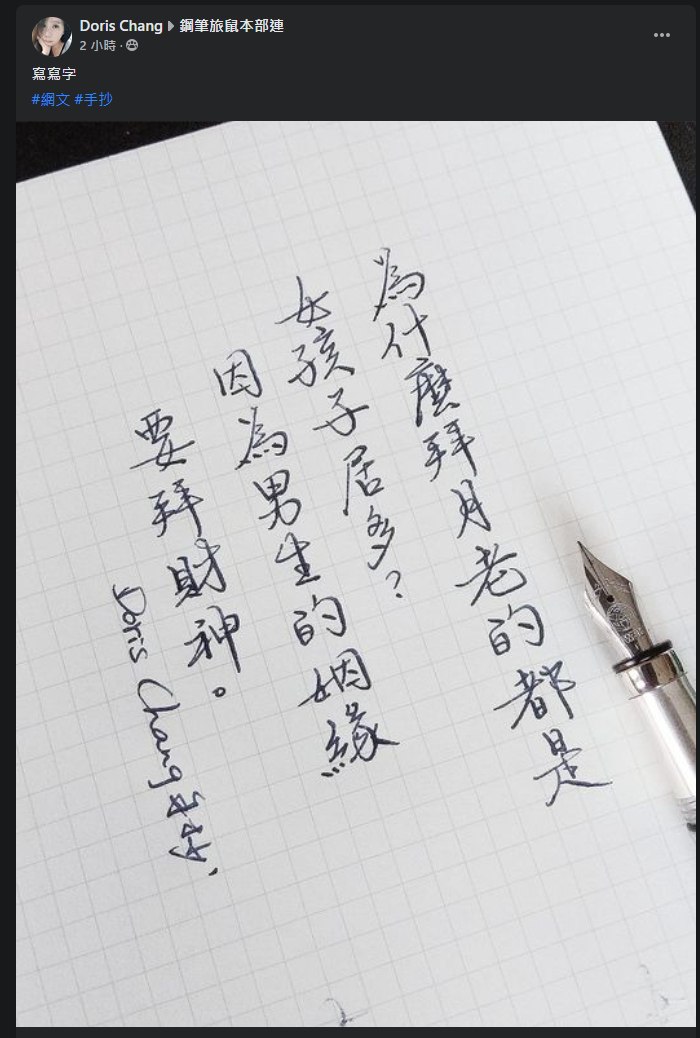 Doris Chang ▸ 鋼筆旅鼠本部連
2 小時 ·
寫寫字
#網文 #手抄
為什麼拜月老的都是
女孩子居多?
因為男生的姻緣
要拜財神。
Doris Chang